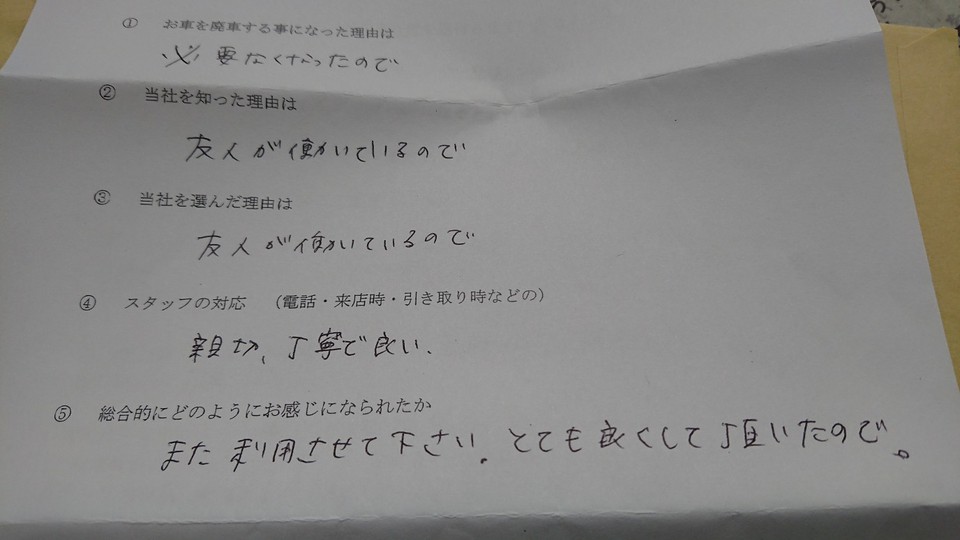 ① お車を廃車する事になった理由は
必要なくなったので
② 当社を知った理由は
友人が働いているので
③ 当社を選んだ理由は
友人が働いているので
④ スタッフの対応 (電話・来店時・引き取り時などの)
親切、丁寧で良い.
⑤ 総合的にどのようにお感じになられたか
また利用させて下さい。とても良くして頂いたので。